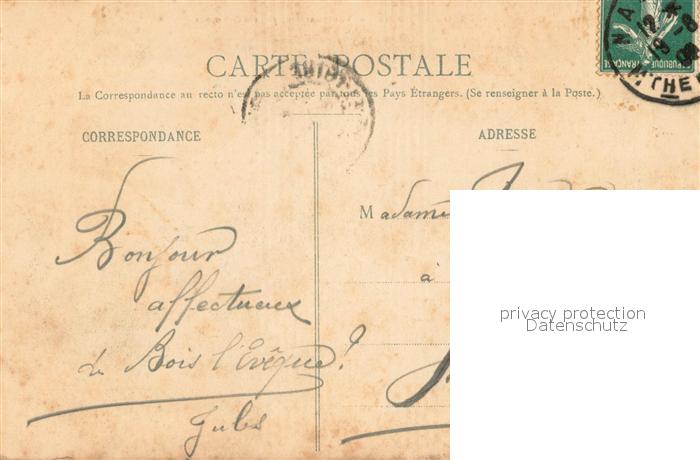 CARTE POSTALE
La Correspondance au recto n'est pas acceptée par tous les Pays Étrangers. (Se renseigner à la Poste.)
CORRESPONDANCE
ADRESSE
Madame
à
Bonjour
affectueux
de Bois l'Evêque!
Jules
privacy protection
Datenschutz
REPUBLIQUE FRANÇAISE
NA
12
19-8
THE